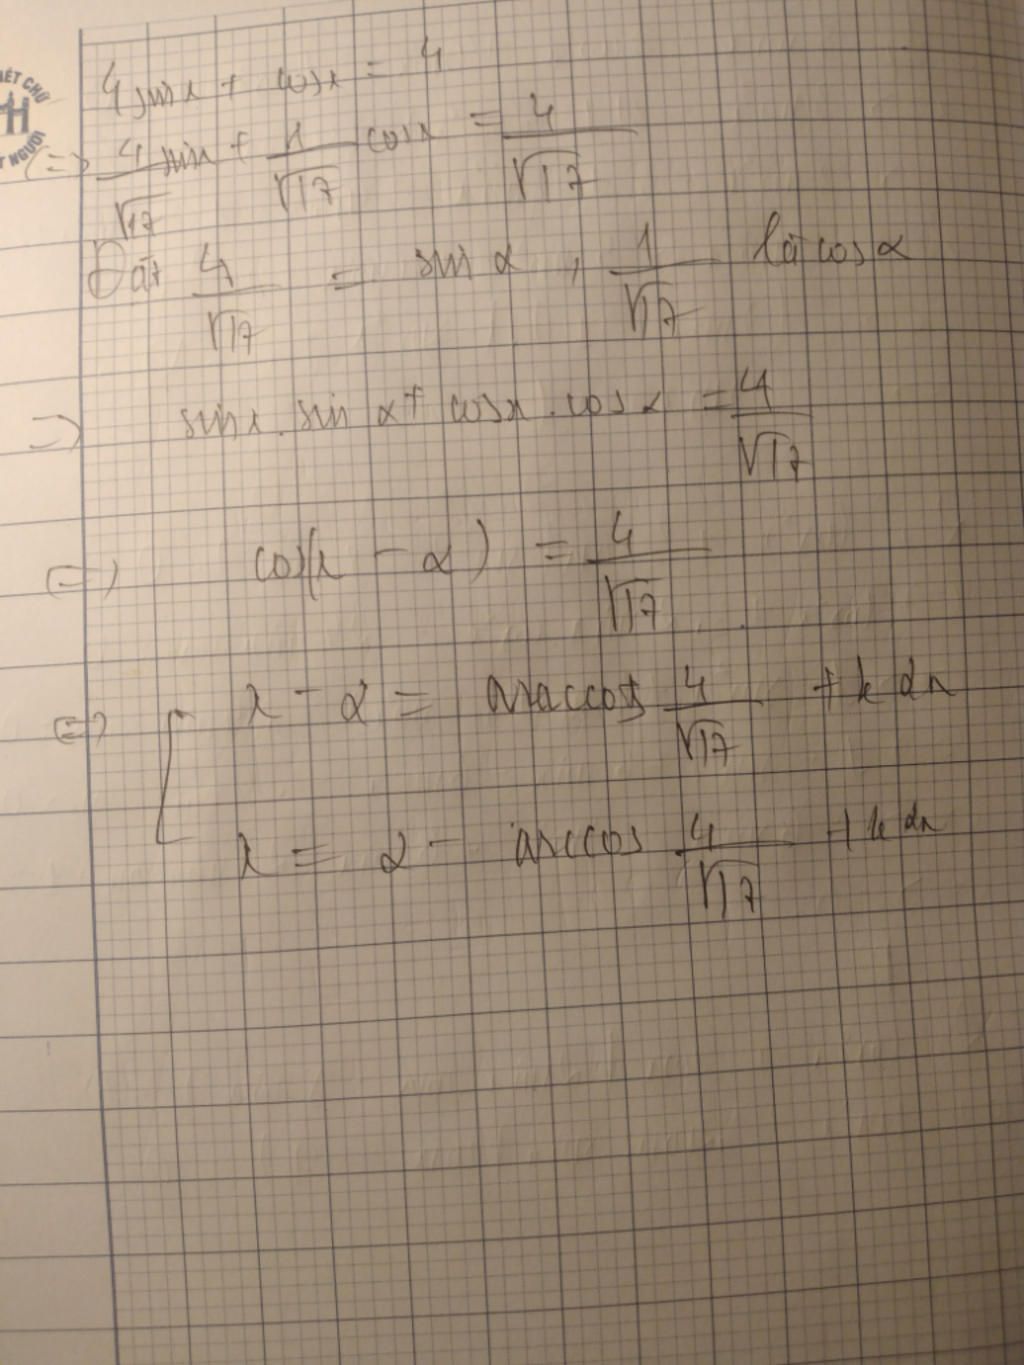 IẾT CHỮ
H
T NGƯỜI
4 sin x + cos x = 4
(=) 4/√17 sin x + 1/√17 cos x = 4/√17
Đặt 4/√17 = sin α, 1/√17 là cos α
=) sin x . sin α + cos x . cos α = 4/√17
(=) cos(x - α) = 4/√17
(=) [ x - α = arccos 4/√17 + k2π
x = α - arccos 4/√17 + k2π